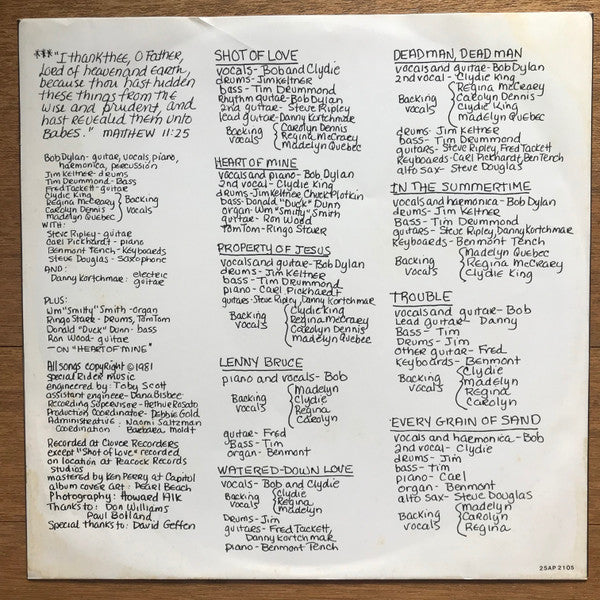 *** "I thank thee, O Father,
Lord of heaven and earth,
because thou hast hidden
these things from the
wise and prudent, and
hast revealed them unto
Babes." MATTHEW 11:25
Bob Dylan - guitar, vocals, piano,
harmonica, percussion
Jim Keltner - drums
Tim Drummond - Bass
Fred Tackett - guitar
Clydie King
Regina McCrary
Carolyn Dennis
Madelyn Quebec
Backing
vocals
WITH:
Steve Ripley - guitar
Carl Pickhardt - piano
Benmont Tench - Keyboards
Steve Douglas - Saxophone
AND:
Danny Kortchmar: electric
guitar
PLUS:
Wm "Smitty" Smith - Organ
Ringo Starr - Drums, TomTom
Donald "Duck" Dunn - bass
Ron Wood - guitar
- ON "HEART OF MINE"
All songs copyright © 1981
Special Rider Music
engineered by: Toby Scott
assistant engineer - Dana Bisbee
Recording Supervisor - Arthur Rosato
Production Coordinator - Debbie Gold
Administrative: Naomi Saltzman
Coordination Barbara Moldt
Recorded at Clover Recorders
except "Shot of Love" recorded
on location at Peacock Records
Studios
mastered by Ken Perry at Capitol
album cover art: Pearl Beach
Photography: Howard Alk
Thanks to: Don Williams
Paul Bolland
Special thanks to: David Geffen
SHOT OF LOVE
vocals - Bob and Clydie
drums - Jim Keltner
bass - Tim Drummond
Rhythm guitar - Bob Dylan
2nd guitar - Steve Ripley
lead guitar - Danny Kortchmar
Backing
vocals
Carolyn Dennis
Regina McCrary
Madelyn Quebec
HEART OF MINE
vocals and piano - Bob Dylan
2nd vocal - Clydie King
drums - Jim Keltner Chuck Plotkin
bass - Donald "Duck" Dunn
organ - Wm "Smitty" Smith
guitar - Ron Wood
Tom Tom - Ringo Starr
PROPERTY OF JESUS
vocals and guitar - Bob Dylan
drums - Jim Keltner
bass - Tim Drummond
piano - Carl Pickhardt
guitars - Steve Ripley, Danny Kortchmar
Backing
vocals
Clydie King
Regina McCrary
Carolyn Dennis
Madelyn Quebec
LENNY BRUCE
piano and vocals - Bob
Backing
vocals
Madelyn
Clydie
Regina
Carolyn
guitar - Fred
Bass - Tim
organ - Benmont
WATERED-DOWN LOVE
vocals - Bob and Clydie
Backing
vocals
Clydie
Regina
Madelyn
Drums - Jim
guitars - Fred Tackett,
Danny Kortchmar
piano - Benmont Tench
DEAD MAN, DEAD MAN
vocals and guitar - Bob Dylan
2nd vocal - Clydie King
Backing
vocals
Regina McCrary
Carolyn Dennis
Clydie King
Madelyn Quebec
drums - Jim Keltner
bass - Tim Drummond
guitars - Steve Ripley, Fred Tackett
Keyboards - Carl Pickhardt, Ben Tench
alto sax - Steve Douglas
IN THE SUMMERTIME
vocals and harmonica - Bob Dylan
drums - Jim Keltner
Bass - Tim Drummond
guitars - Steve Ripley, Danny Kortchmar
Keyboards - Benmont Tench
Backing
vocals
Madelyn Quebec
Regina McCrary
Clydie King
TROUBLE
vocals and guitar - Bob
Lead guitar - Danny
Bass - Tim
Drums - Jim
other guitar - Fred
Keyboards - Benmont
Backing
vocals
Clydie
Madelyn
Regina
Carolyn
EVERY GRAIN OF SAND
vocals and harmonica - Bob
2nd vocal - Clydie
drums - Jim
bass - Tim
piano - Carl
organ - Benmont
alto sax - Steve Douglas
Backing
vocals
Madelyn
Carolyn
Regina
25AP 2105